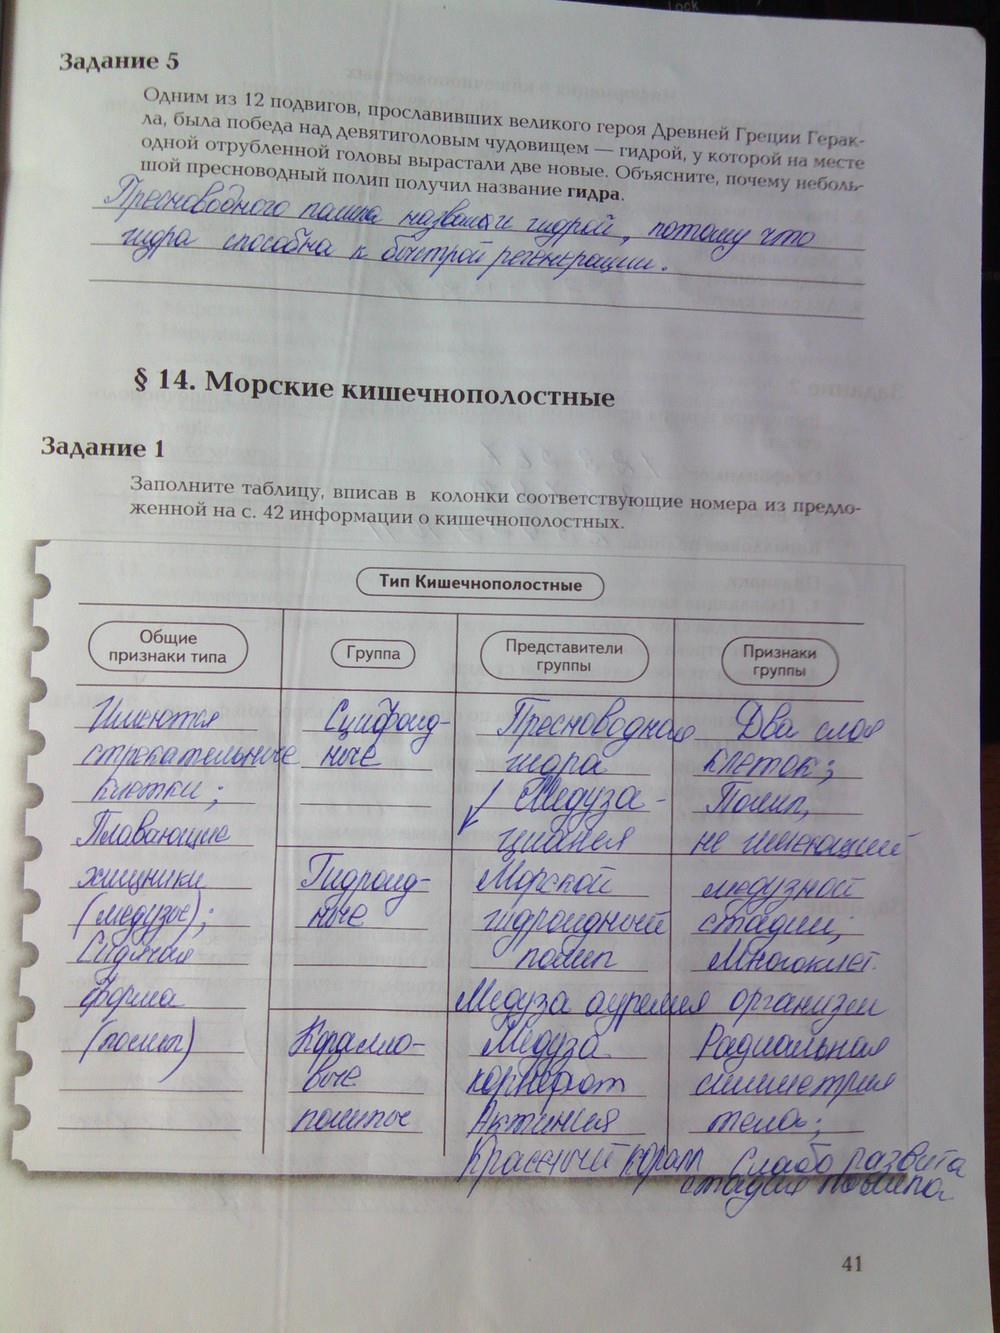 Lock
Задание 5
Одним из 12 подвигов, прославивших великого героя Древней Греции Герак-
ла, была победа над девятиголовым чудовищем — гидрой, у которой на месте
одной отрубленной головы вырастали две новые. Объясните, почему неболь-
шой пресноводный полип получил название гидра.
Пресноводного полипа назвали гидрой, потому что
гидра способна к быстрой регенерации.
§ 14. Морские кишечнополостные
Задание 1
Заполните таблицу, вписав в колонки соответствующие номера из предло-
женной на с. 42 информации о кишечнополостных.
Тип Кишечнополостные
Общие
признаки типа
Группа
Представители
группы
Признаки
группы
Имеются
стрекательные
клетки;
Плавающие
хищники
(медузы);
Сидячая
форма
(полип)
Сцифоид-
ные
Гидроид-
ные
Коралло-
вые
полипы
Пресноводная
гидра
Медуза -
цианея
Морской
гидроидный
полип
Медуза аурелия
Медуза
корнерот
Актиния
Красный коралл
Два слоя
клеток;
Полип,
не имеющий
медузной
стадии;
Многоклет.
организм
Радиальная
симметрия
тела;
Слабо развита
стадия полипа
41